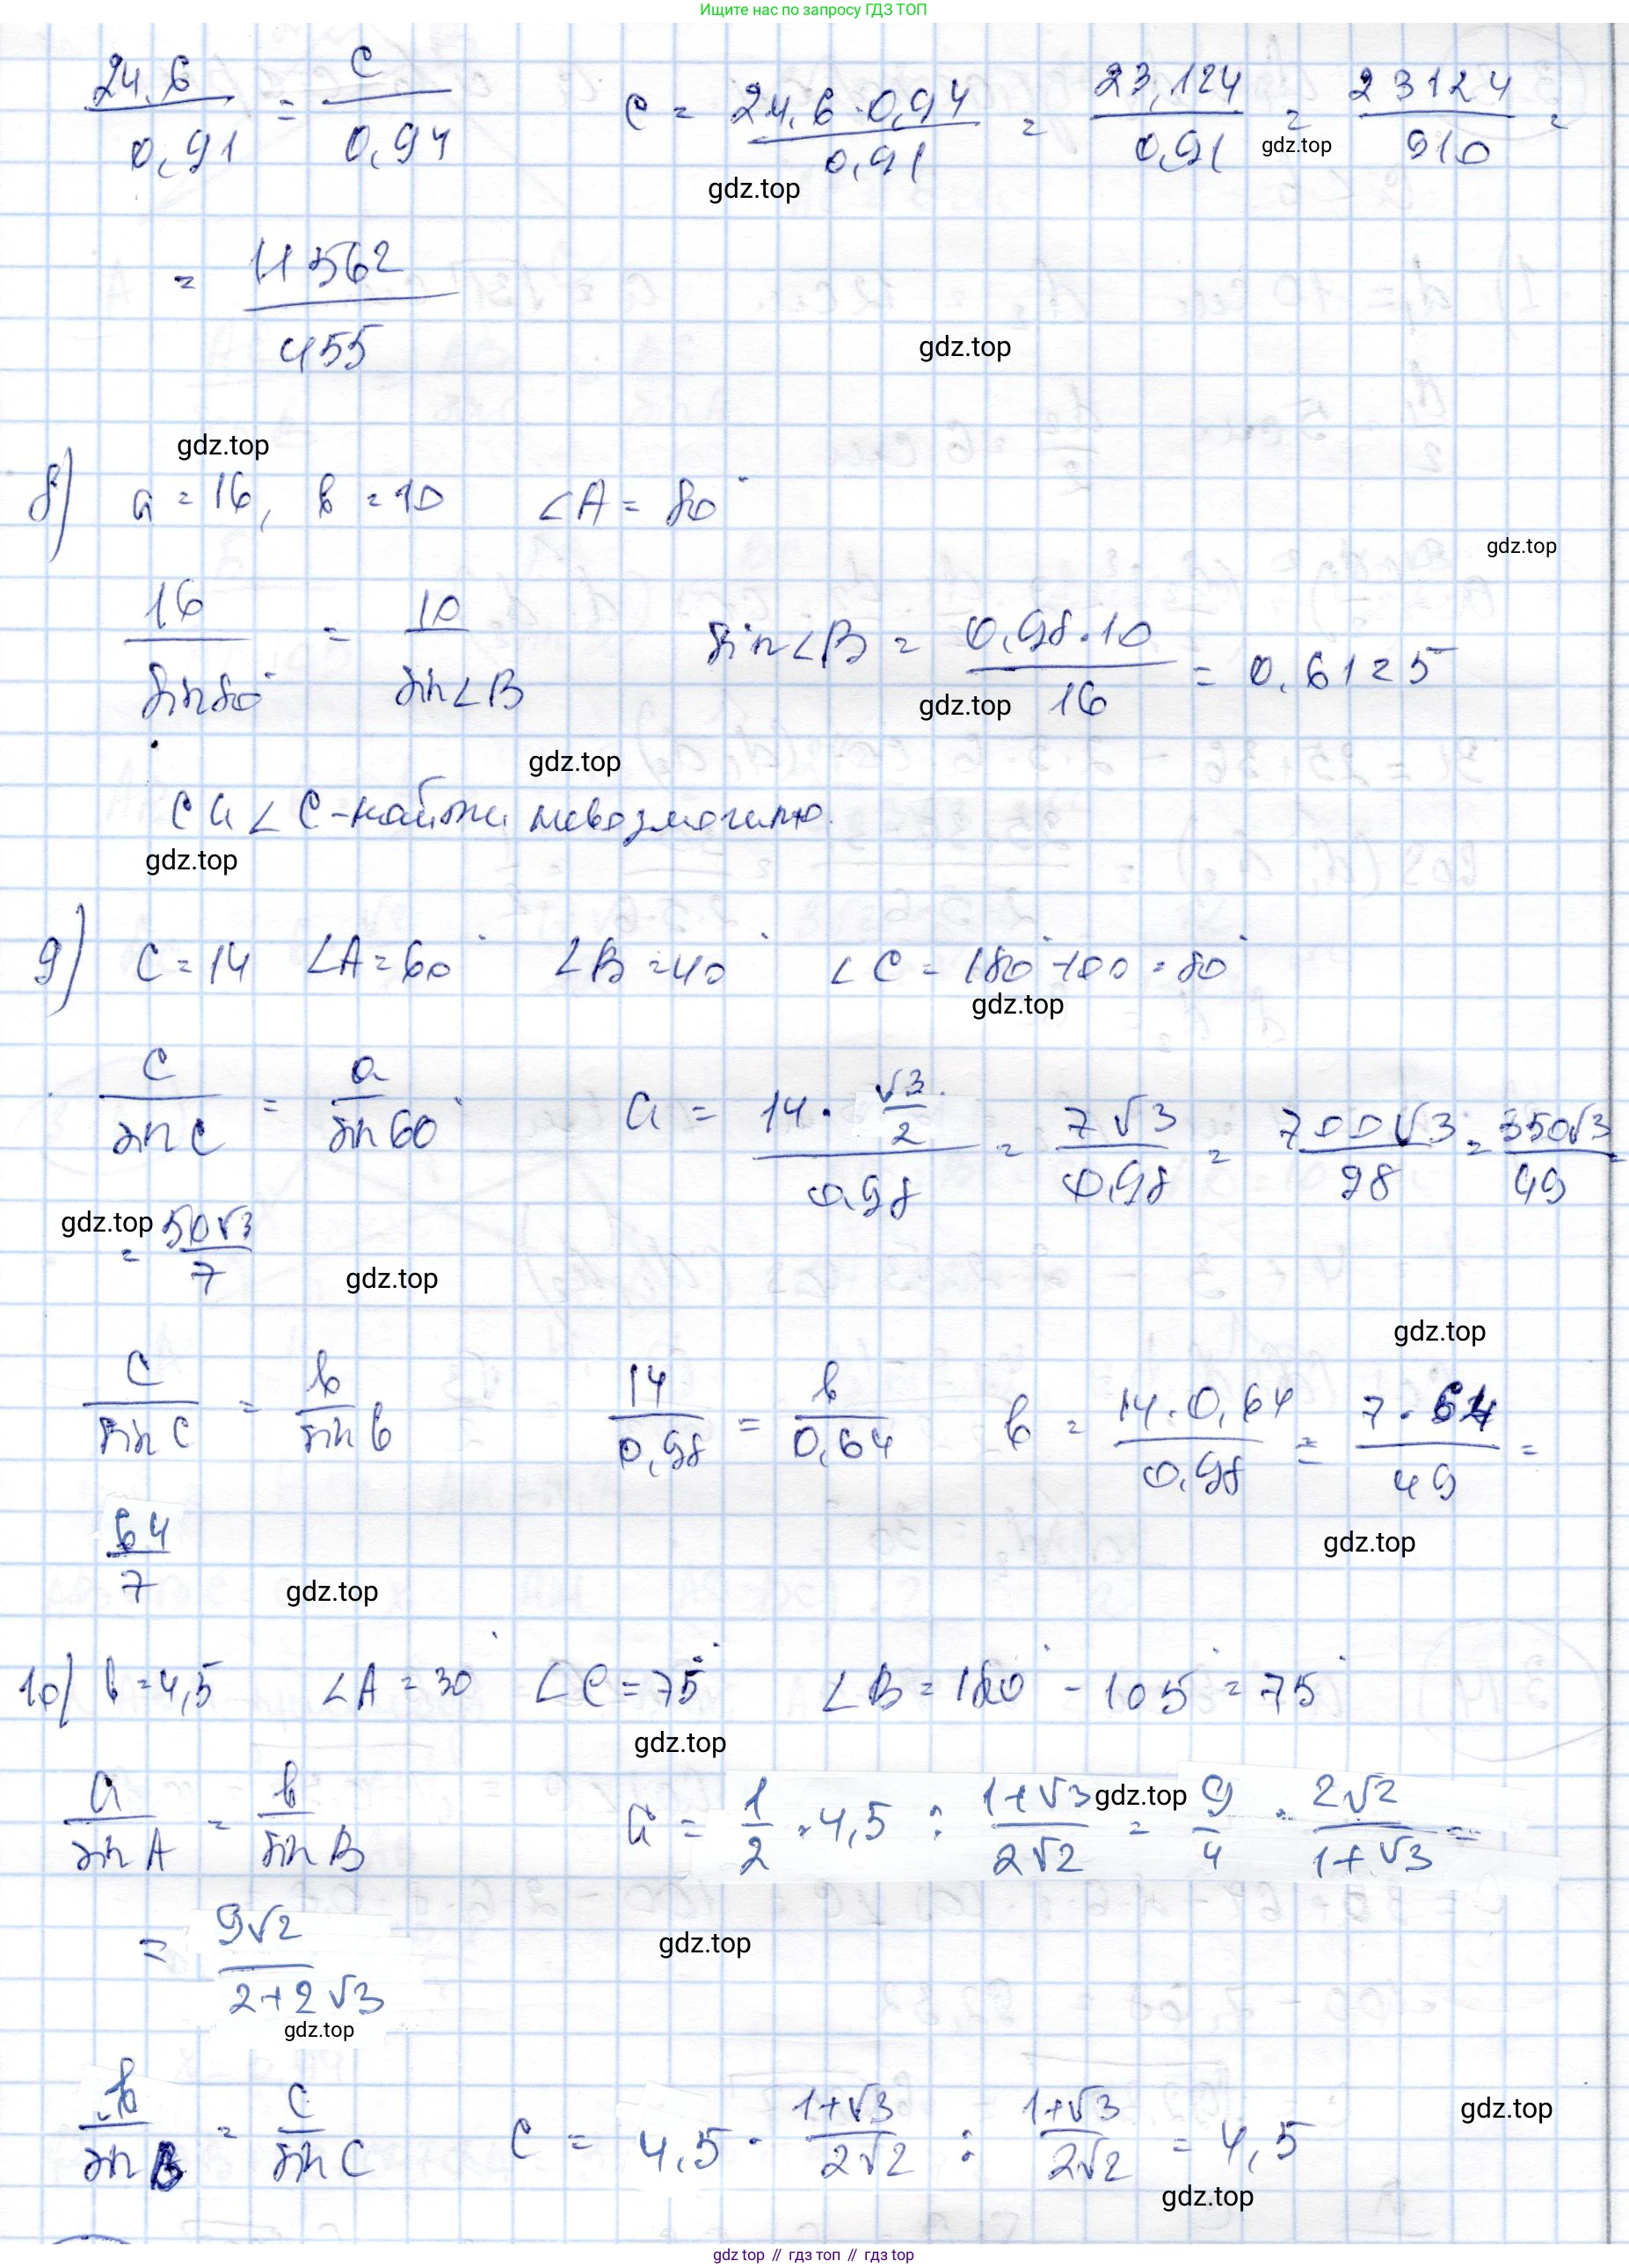 Ищите нас по запросу ГДЗ ТОП
24,6/0,91 = c/0,94   c = 24,6·0,94/0,91 = 23,124/0,91 = 23124/910 =
gdz.top
gdz.top
= 11562/455
gdz.top
gdz.top
8) a = 16, b = 10 ∠A = 80°
gdz.top
16/sin80° = 10/sin∠B   sin∠B = 0,98·10/16 = 0,6125
gdz.top
gdz.top
c и ∠C - найти невозможно.
gdz.top
9) c = 14 ∠A = 60° ∠B = 40° ∠C = 180° - 100 = 80°
gdz.top
c/sin C = a/sin 60°   a = 14·√3/2/0,98 = 7√3/0,98 = 700√3/98 = 350√3/49 =
gdz.top
= 50√3/7
gdz.top
gdz.top
c/sin C = b/sin b   14/0,98 = b/0,64   b = 14·0,64/0,98 = 7·64/49 =
gdz.top
64/7
gdz.top
10) b = 4,5 ∠A = 30° ∠C = 75° ∠B = 180° - 105° = 75°
gdz.top
a/sin A = b/sin B   a = 1/2 · 4,5 : 1+√3/2√2 = 9/4 · 2√2/1+√3 =
gdz.top
= 9√2/2+2√3
gdz.top
gdz.top
b/sin B = c/sin C   c = 4,5 · 1+√3/2√2 : 1+√3/2√2 = 4,5
gdz.top
gdz.top
gdz top // гдз топ // гдз top